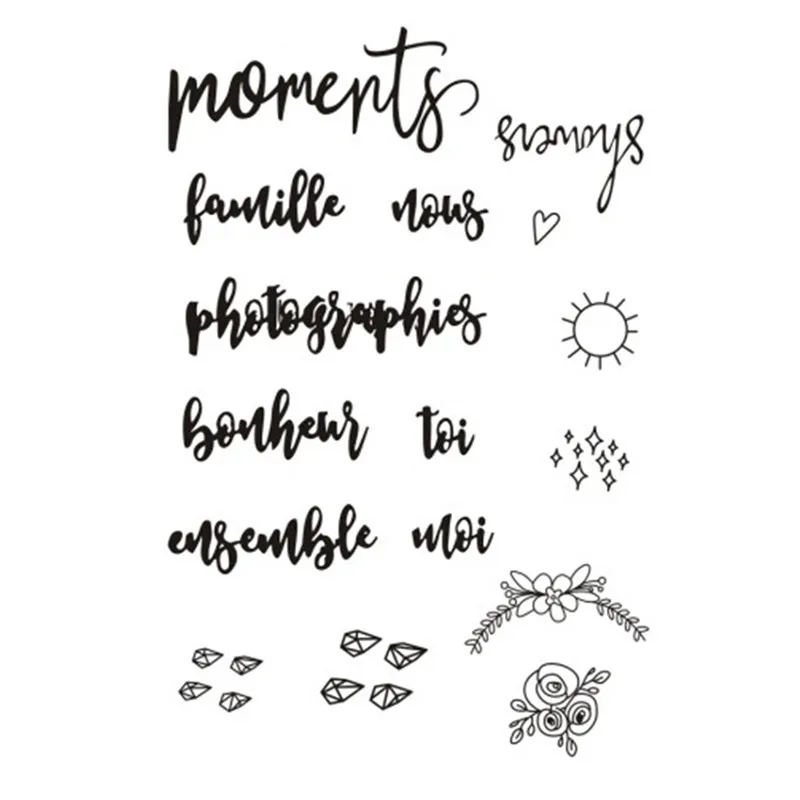 moments
famille nous
photographies
bonheur toi
ensemble moi